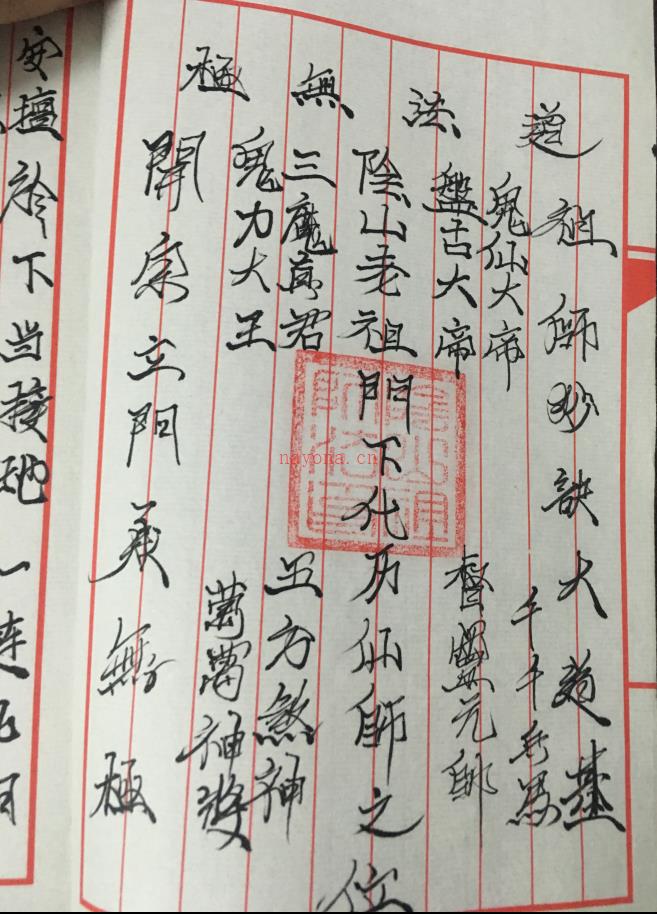 道法無極
祖師妙訣大道基
鬼仙大帝
千千兵馬
盤古大帝
元帥
陰山老祖門下化乃仙師之位
三魔真君
五方煞神
鬼力大王
萬萬神獎
開宗立門承無極
安壇於下当接地
一連
nayona.cn